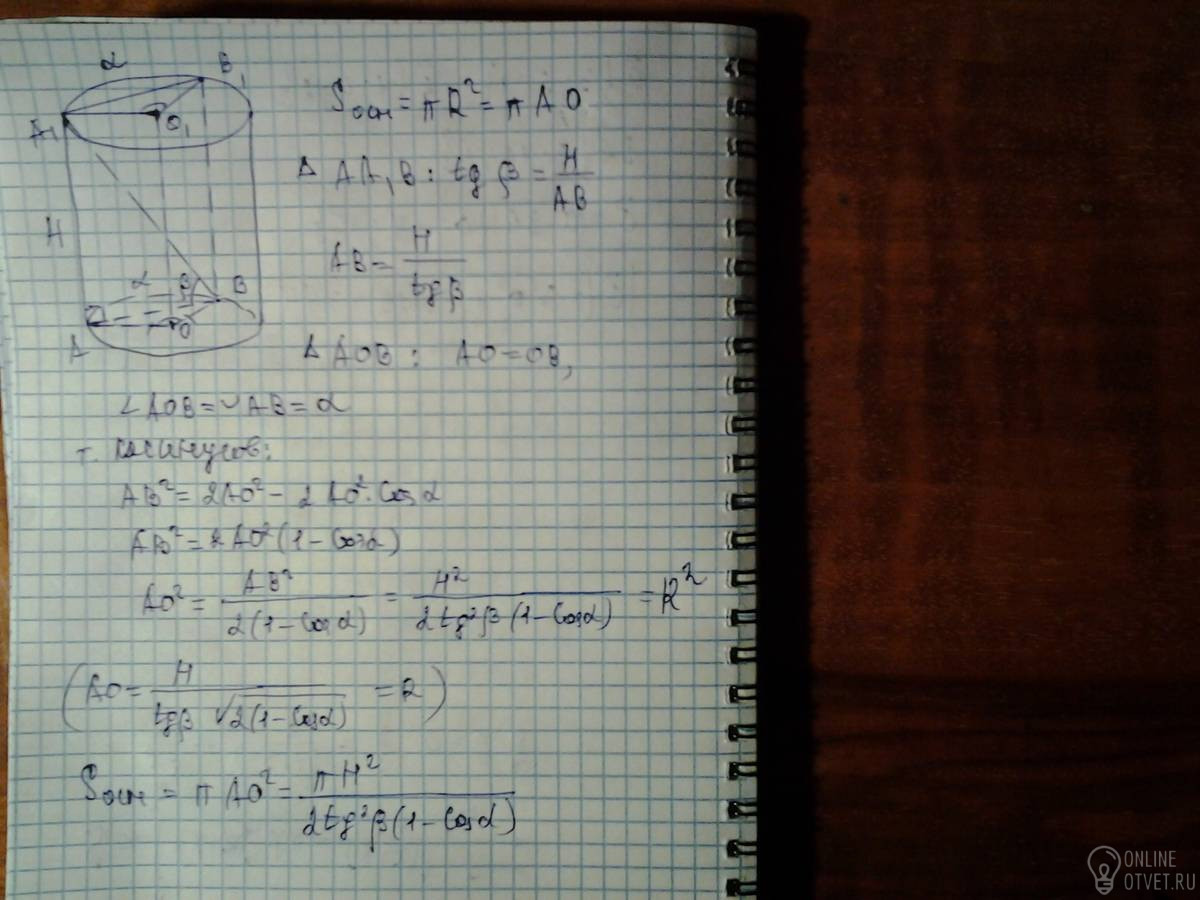 α
B₁
A₁
O₁
H
α
β
B
A
O
Sосн = πR² = πAO
Δ AA₁B : tg β = H/AB
AB = H/tgβ
Δ AOB : AO = OB,
∠AOB = ◡AB = α
т. косинусов:
AB² = 2AO² - 2AO²·Cosα
AB² = 2AO²(1-Cosα)
AO² = AB²/2(1-Cosα) = H²/2tg²β(1-Cosα) = R²
(AO = H/tgβ √2(1-Cosα) = R)
Sосн = πAO² = πH²/2tg²β(1-Cosα)
ONLINE
OTVET.RU